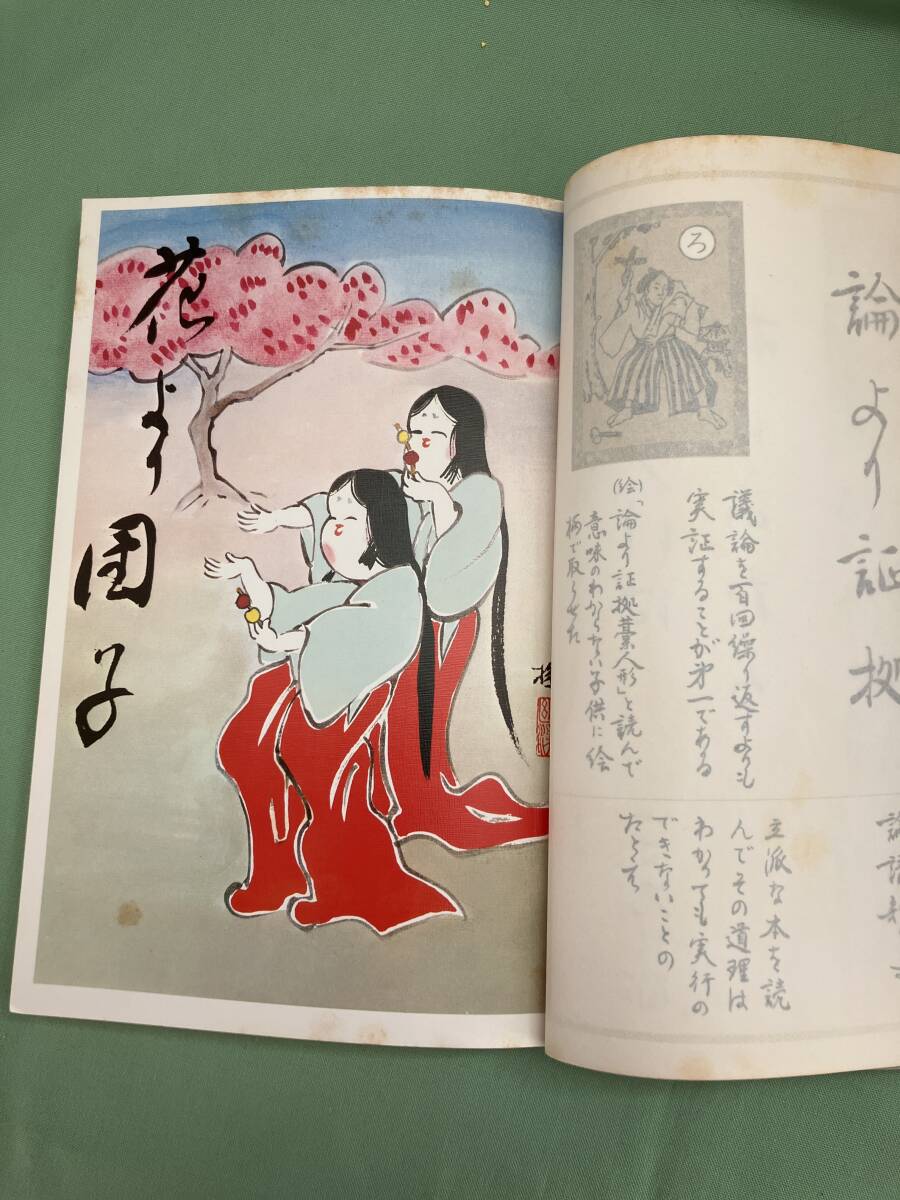 花より団子
ろ
論より証拠
議論を百回繰り返すよりも
実証することが才一である
(絵)「論より証拠藁人形」と読んで
意味のわからない子供に絵
柄で取らせた
立派な本を読
んでその道理は
わかっても実行の
できないことの
たとえ